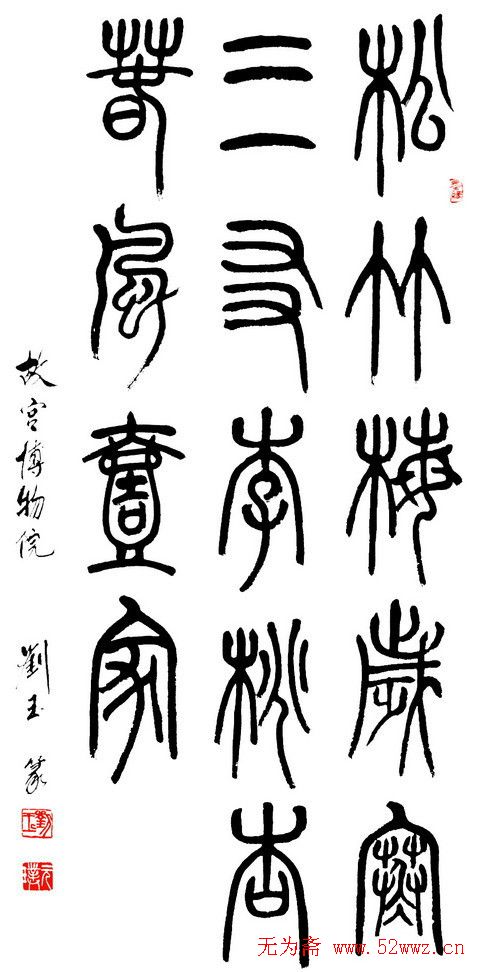 松竹梅歲寒
三友李桃杏
春風壹家
故宮博物院 劉玉 篆
无为斋 www.52wwz.cn